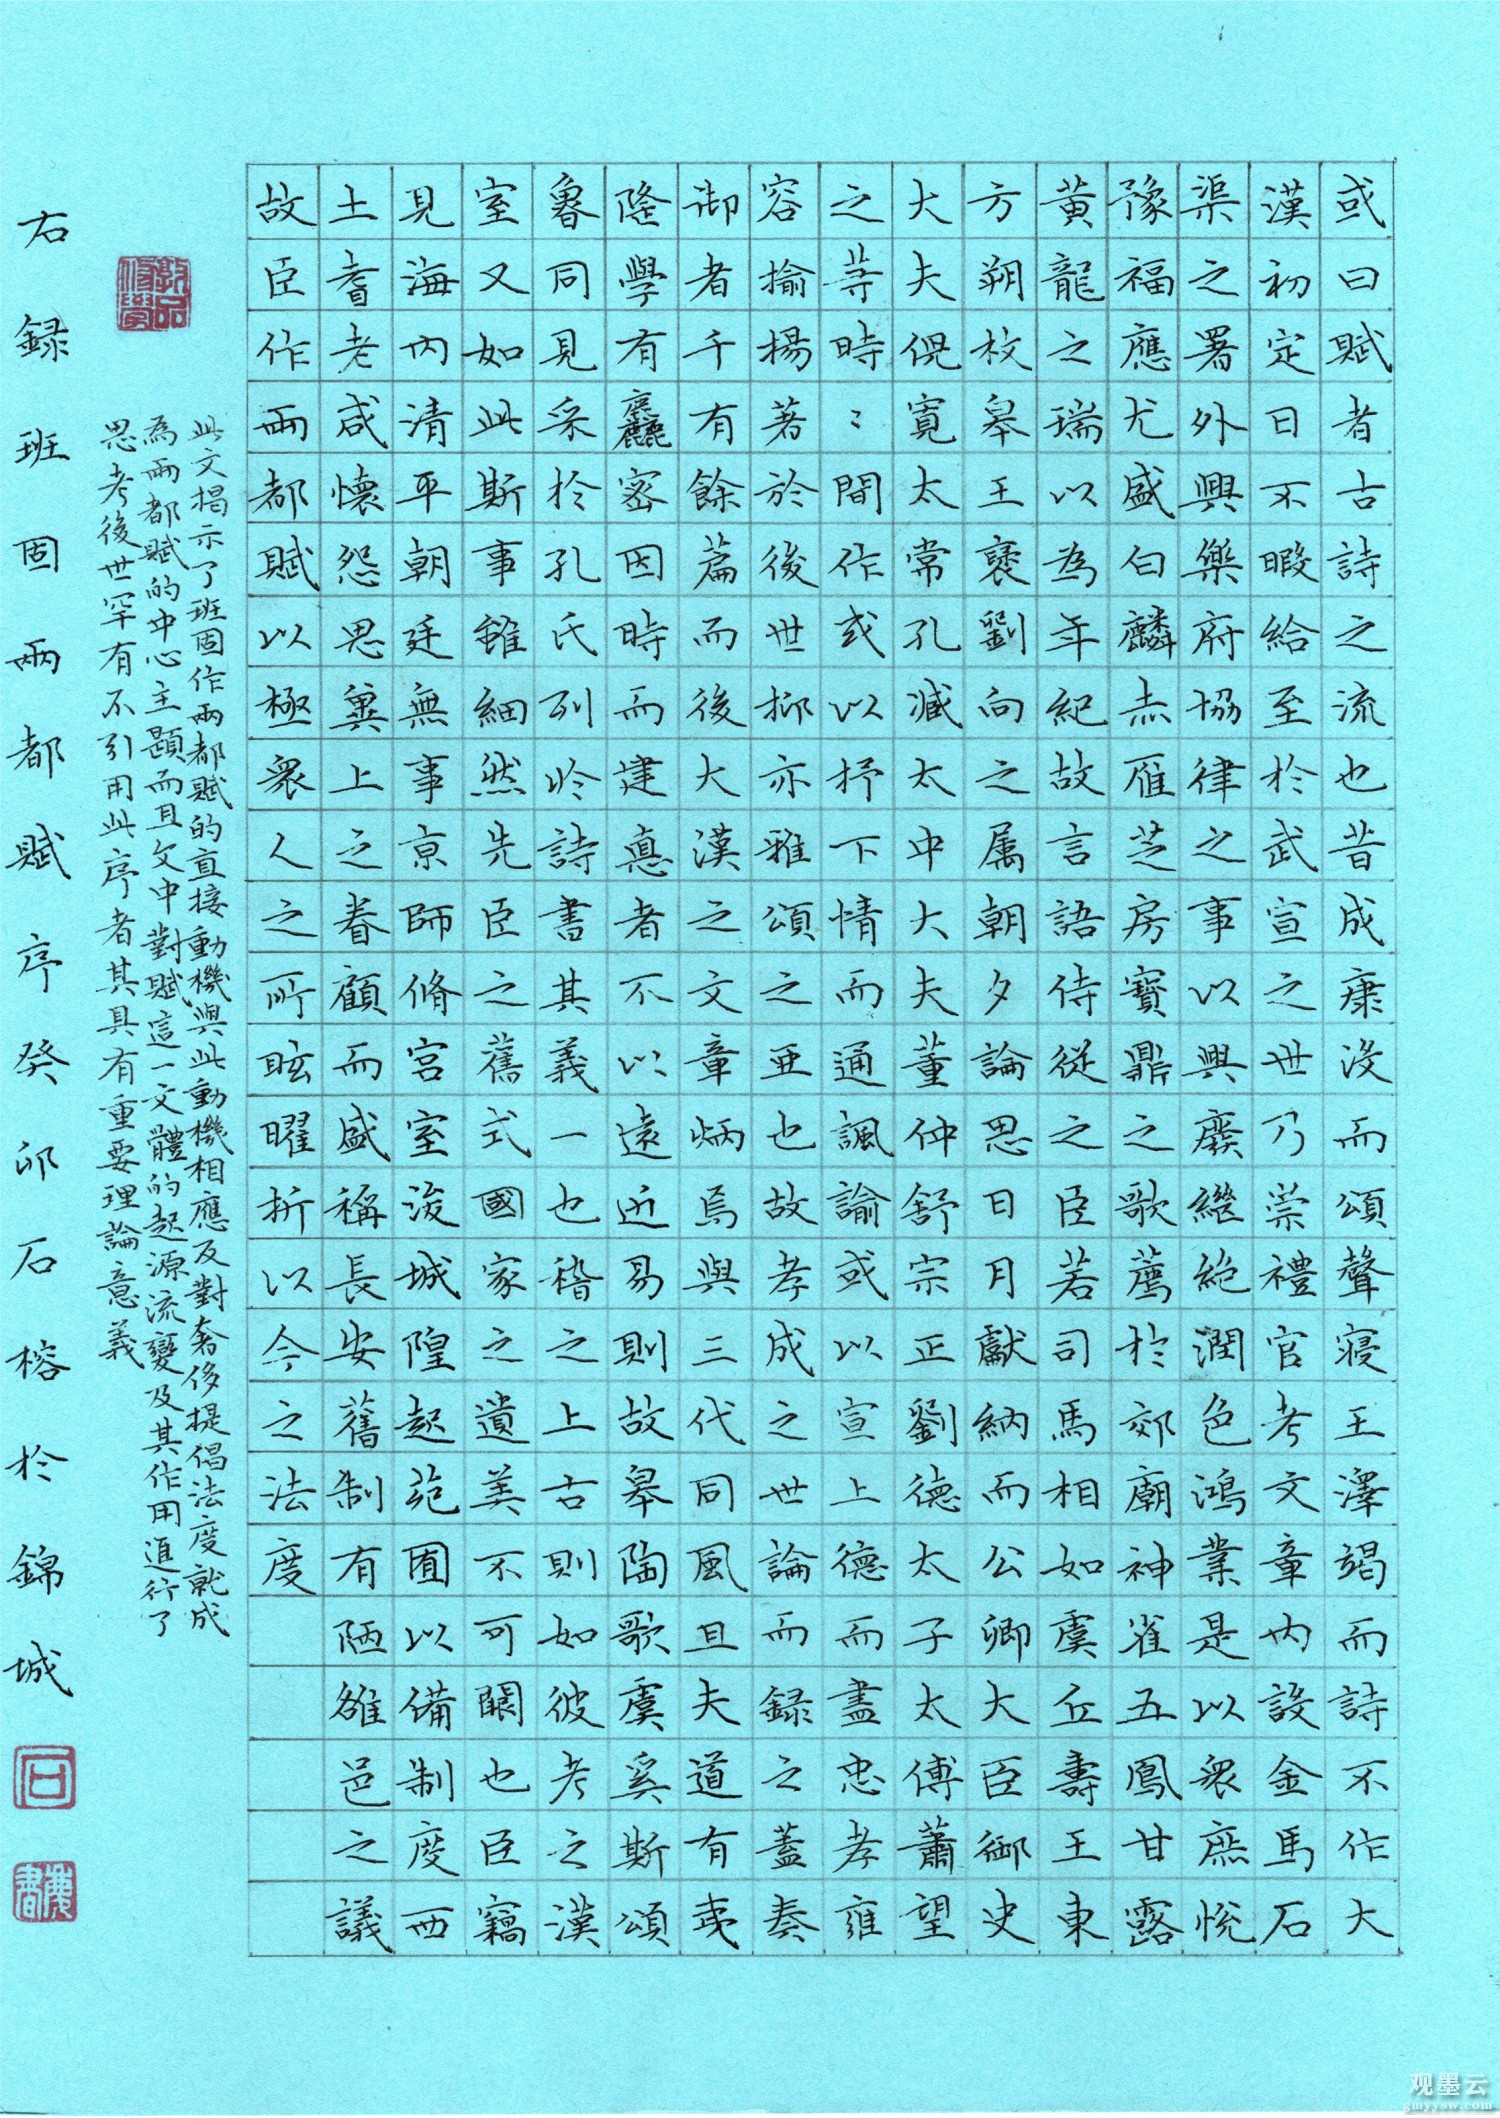 或曰賦者古詩之流也昔成康沒而頌聲寢王澤竭而詩不作大
漢初定日不暇給至於武宣之世乃崇禮官考文章內設金馬石
渠之署外興樂府協律之事以興廢繼絕潤色鴻業是以衆庶悅
豫福應尤盛白麟赤雁芝房寶鼎之歌薦於郊廟神雀五鳳甘露
黃龍之瑞以為年紀故言語侍從之臣若司馬相如虞丘壽王東
方朔枚皋王褒劉向之属朝夕論思日月獻納而公卿大臣御史
大夫倪寬太常孔臧太中大夫董仲舒宗正劉德太子太傅蕭望
之等時々間作或以抒下情而通諷諭或以宣上德而盡忠孝雍
容揄揚著於後世抑亦雅頌之亞也故孝成之世論而録之蓋奏
御者千有餘篇而後大漢之文章炳焉與三代同風且夫道有夷
隆學有麤密因時而建悳者不以遠近易則故皋陶歌虞奚斯頌
魯同見采於孔氏列於詩書其義一也稽之上古則如彼考之漢
室又如此斯事雖細然先臣之舊式國家之遺美不可闕也臣竊
見海內清平朝廷無事京師脩宮室浚城隍起苑囿以備制度西
土耆老咸懷怨思冀上之眷顧而盛稱長安舊制有陋雒邑之議
故臣作兩都賦以極衆人之所眩曜折以今之法度
此文揭示了班固作兩都賦的直接動機與此動機相應及對奢侈提倡法度就成
為兩都賦的中心主題而且文中對賦這一文體的起源流變及其作用進行了
思考後世罕有不引用此序者其具有重要理論意義
敦品修學
右録班固兩都賦序癸卯石榕於錦城
石
观墨云
gmyysw.com